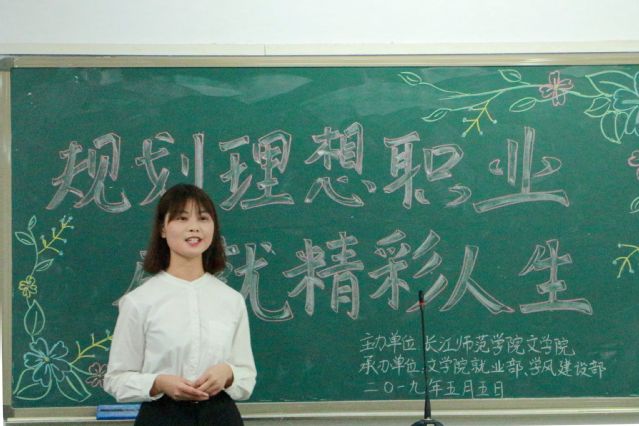 规划理想职业
就精彩人生
主办单位:长江师范学院文学院
承办单位:文学院就业部、学风建设部
二〇一九年五月五日